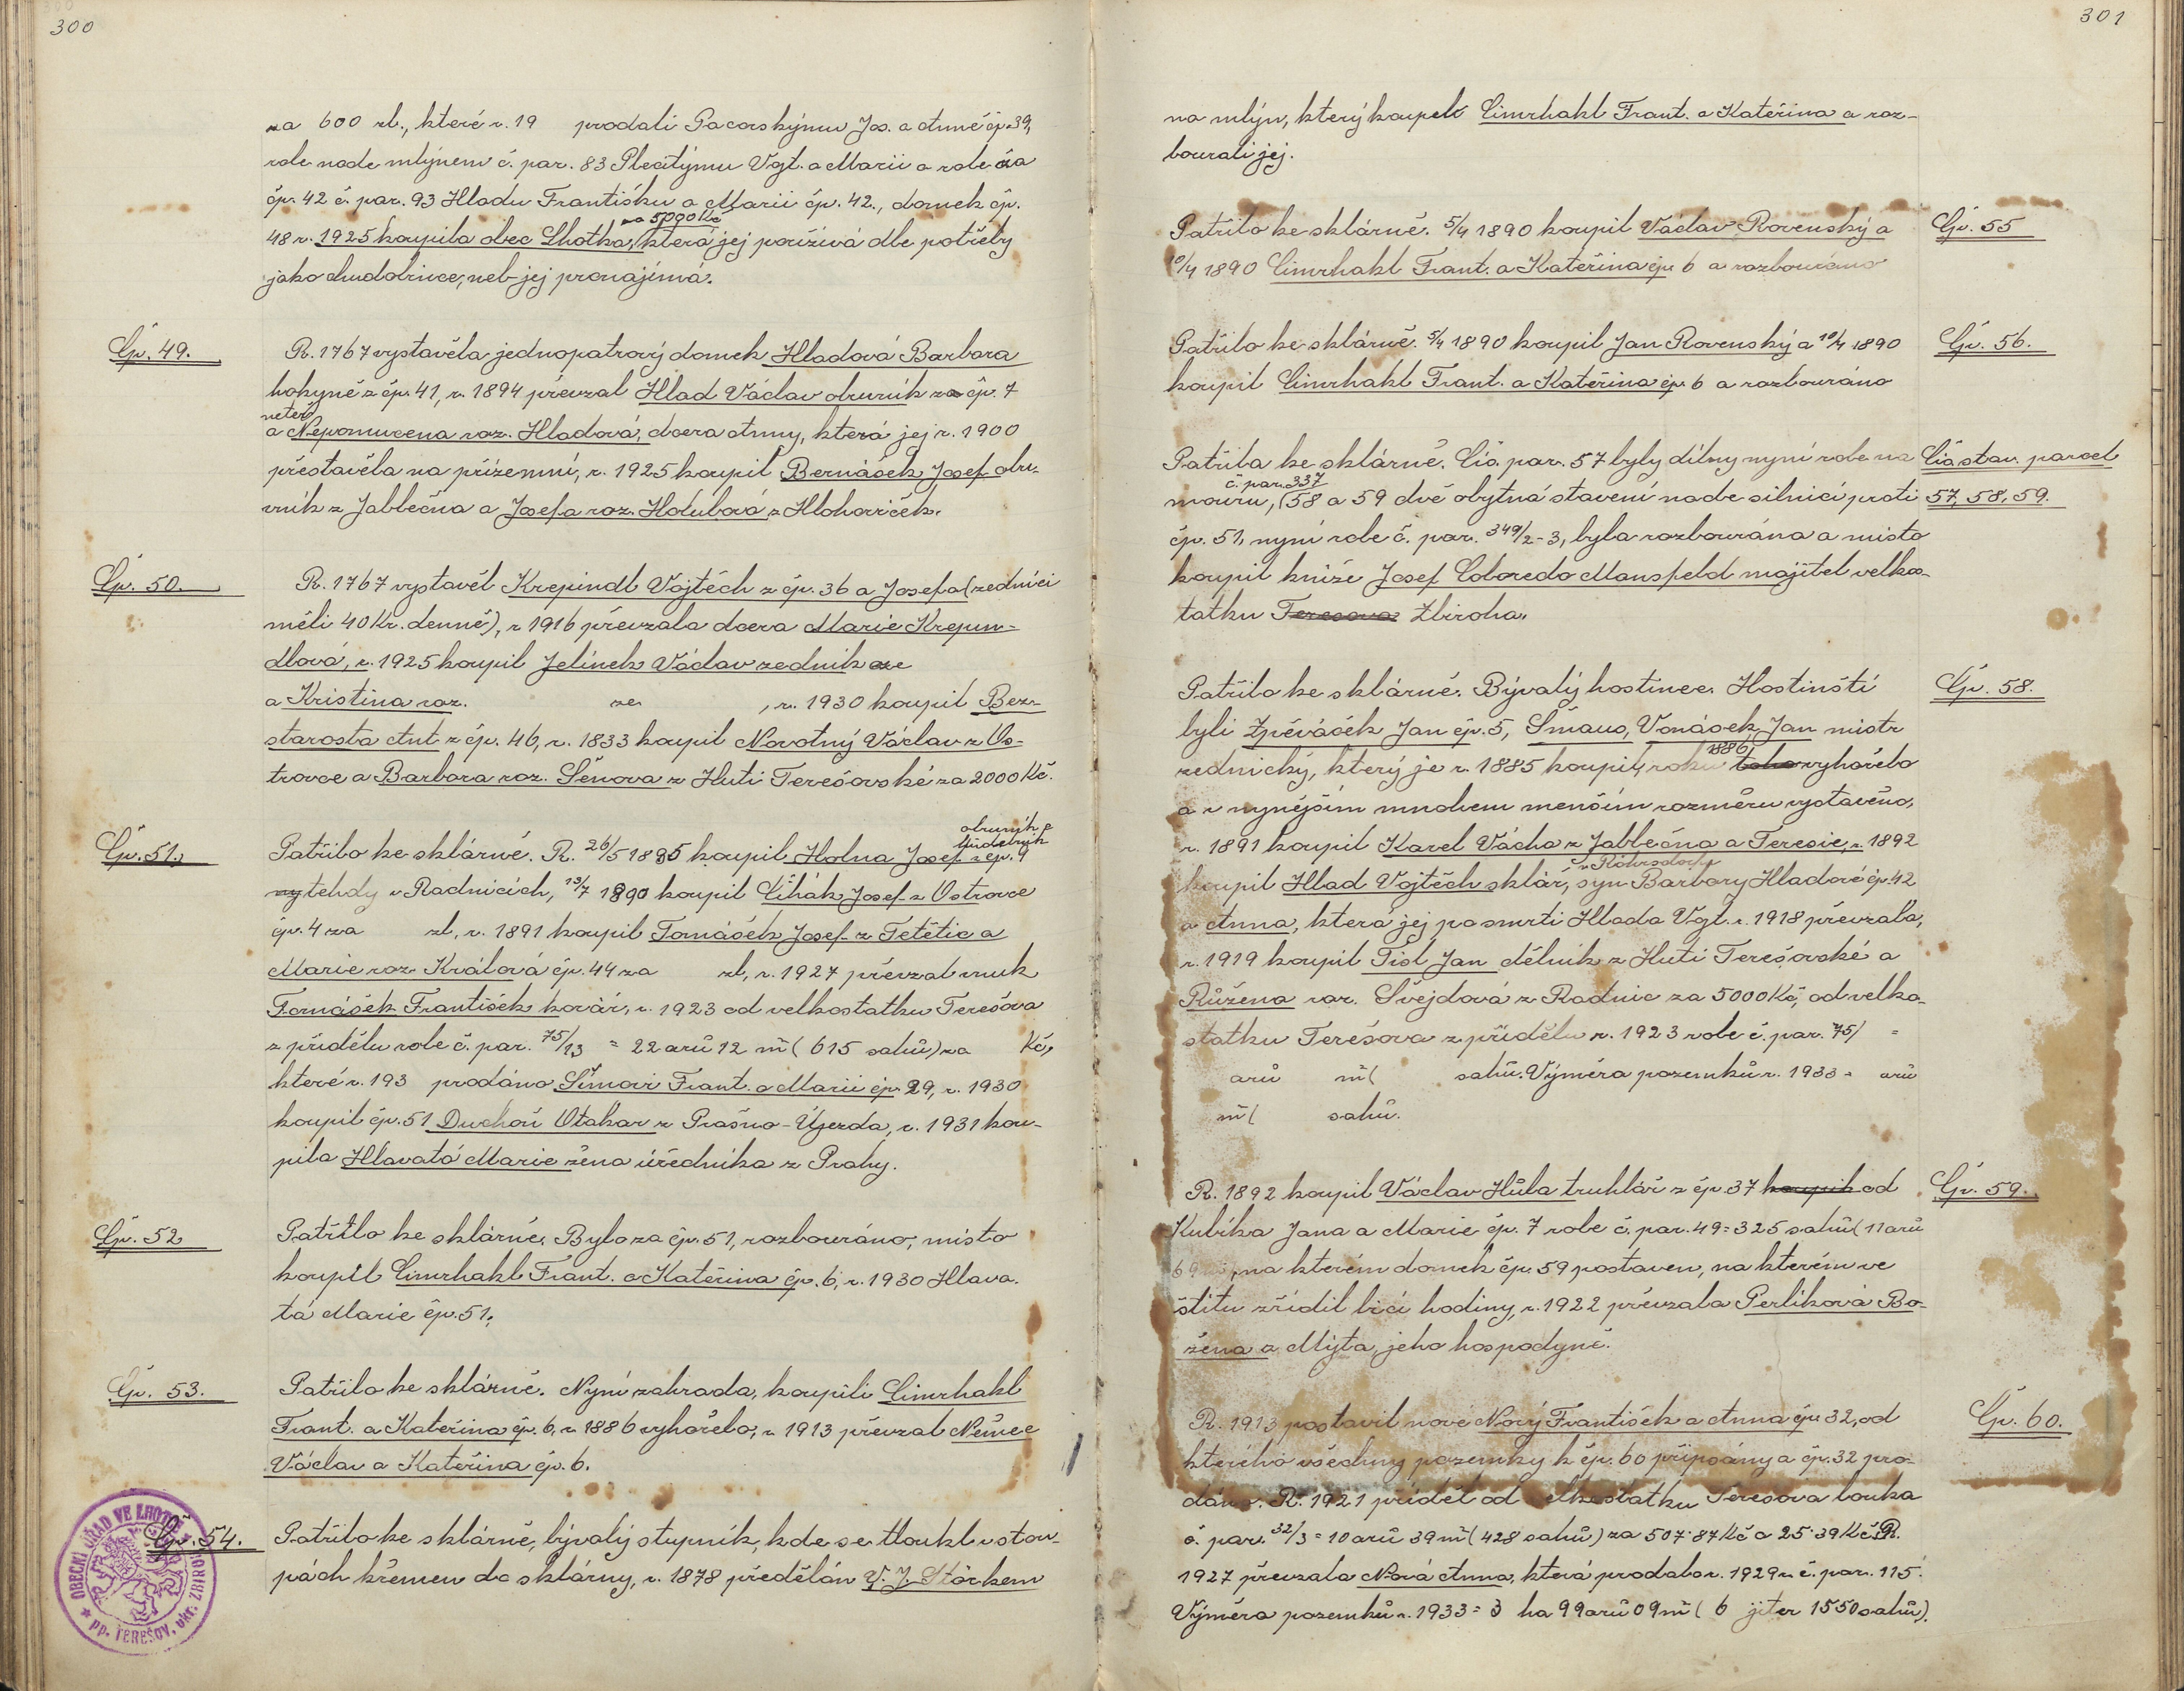 300
za 600 zl., které r. 19 prodali Pacovskýmu Jos. a Anně čp. 39,
role nade mlýnem č. par. 83 Plecitýmu Vojt. a Marii a role za
čp. 42 č. par. 93 Hladu Františku a Marii čp. 42., domek čp.
za 5000 Kč
48 r. 1925 koupila obec Lhotka, která jej používá dle potřeby
jako chudobince, neb jej pronajímá.
Čp. 49.
R. 1767 vystavěla jednopatrový domek Hladová Barbara
hokyně z čp. 41, r. 1894 převzal Hlad Václav obuvník z čp. 7
neteř
a Nepomucena roz. Hladová, dcera Anny, která jej r. 1900
přestavěla na přízemní, r. 1925 koupil Bernášek Josef obu-
vník z Jablečna a Josefa roz. Holubová z Hlohoviček.
Čp. 50.
R. 1767 vystavěl Krepindl Vojtěch z čp. 36 a Josefa (zedníci
měli 40 Kr. denně), r 1916 převzala dcera Marie Krepin-
dlová, r. 1925 koupil Jelínek Václav zedník ze
a Kristina roz. ze , r. 1930 koupil Bez-
starosta Ant. z čp. 46, r. 1833 koupil Novotný Václav z Os-
trovce a Barbara roz. Šénova z Huti Terešovské za 2000 Kč.
Čp. 51.
obuvník a
hudebník
Patřilo ke sklárně. R. 26/5 1885 koupil Holna Josef z čp. 9
tehdy v Radnicích, 13/7 1890 koupil Číhák Josef z Ostrovce
čp. 4 za zl, r. 1891 koupil Tomášek Josef z Tetětic a
Marie roz. Králová čp. 44 za zl, r. 1927 převzal vnuk
Tomášek František kovář, r. 1923 od velkostatku Terešova
z přídělu role č. par. 75/13 = 22 arů 12 m² (615 sahů) za Kč,
které r. 193 prodáno Šímovi Frant. a Marii čp. 29, r. 1930
koupil čp. 51 Duchoň Otakar z Prašno-Újezda, r. 1931 kou-
pila Hlavatá Marie žena úředníka z Prahy.
Čp. 52
Patřilo ke sklárně. Bylo za čp. 51, rozbouráno, místo
koupil Cimrhakl Frant. a Kateřina čp. 6, r. 1930 Hlava-
tá Marie čp. 51.
Čp. 53.
Patřilo ke sklárně. Nyní zahrada, koupili Cimrhakl
Frant. a Kateřina čp. 6, r. 1886 vyhořelo, r 1913 převzal Němec
Václav a Kateřina čp. 6.
Čp. 54.
Patřilo ke sklárně, bývalý stupník, kde se tloukl v stou-
pách křemen do sklárny, r. 1878 předělán V. J. Störkem
OBECNÍ ÚŘAD VE LHOTCE
pp. TEREŠOV, okr. ZBIROH
301
na mlýn, který koupili Cimrhakl Frant. a Kateřina a roz-
bourali jej.
Čp. 55
Patřilo ke sklárně. 5/4 1890 koupil Václav Rovenský a
10/4 1890 Cimrhakl Frant. a Kateřina čp. 6 a rozbouráno
Čp. 56.
Patřilo ke sklárně. 5/4 1890 koupil Jan Rovenský a 10/4 1890
koupil Cimrhakl Frant. a Kateřina čp. 6 a rozbouráno
Čís stav. parcel
57, 58, 59.
Patřila ke sklárně. Čís. par. 57 byly dílny nyní role na
č. par. 337
mouru, (58 a 59 dvě obytná stavení nade silnicí proti
čp. 51, nyní role č. par. 349/2-3, byla rozbourána a místo
koupil kníže Josef Coloredo Mansfeld majitel velkos-
tatku Teresova Zbiroha.
Čp. 58.
Patřilo ke sklárně. Bývalý hostinec. Hostinští
byli Zpěváček Jan čp. 5, Šmaus, Vonásek Jan mistr
1886
zednický, který je r. 1885 koupil, roku toho vyhořelo
a v nynějším mnohem menším rozměru vystavěno,
r. 1891 koupil Karel Vácha z Jablečna a Teresie, r. 1892
v Röhrsdorfu
koupil Hlad Vojtěch sklář, syn Barbory Hladové čp. 42
a Anna, která jej po smrti Hlada Vojt. r. 1918 převzala,
r. 1919 koupil Tisl Jan dělník z Huti Terešovské a
Růžena roz. Švejdová z Radnic za 5000 Kč, od velko-
statku Terešova z přídělu r. 1923 role č. par. 75/ =
arů m² ( sahů. Výměra pozemků r. 1933 = arů
m² ( sahů.
Čp. 59.
R. 1892 koupil Václav Hůla truhlář z čp. 37 koupil od
Kubíka Jana a Marie čp. 7 role č. par. 49 = 325 sahů (11 arů
69 , na kterém domek čp. 59 postaven, na kterém ve
štítu zřídil bicí hodiny, r. 1922 převzala Perlíková Bo-
žena z Mýta, jeho hospodyně.
Čp. 60.
R. 1913 postavil nové Nový František a Anna čp. 32, od
kterého všechny pozemky k čp. 60 připsány a čp. 32 pro-
dáno. R. 1921 příděl od velkostatku Terešova louka
č. par. 32/3 = 10 arů 39 m² (428 sahů) za 507·87 Kč a 25·39 Kč. R.
1927 převzala Nová Anna, která prodala r. 1929 r. č. par. 115.
Výměra pozemků r. 1933 = 3 ha 99 arů 09 m² ( 6 jiter 1550 sahů).